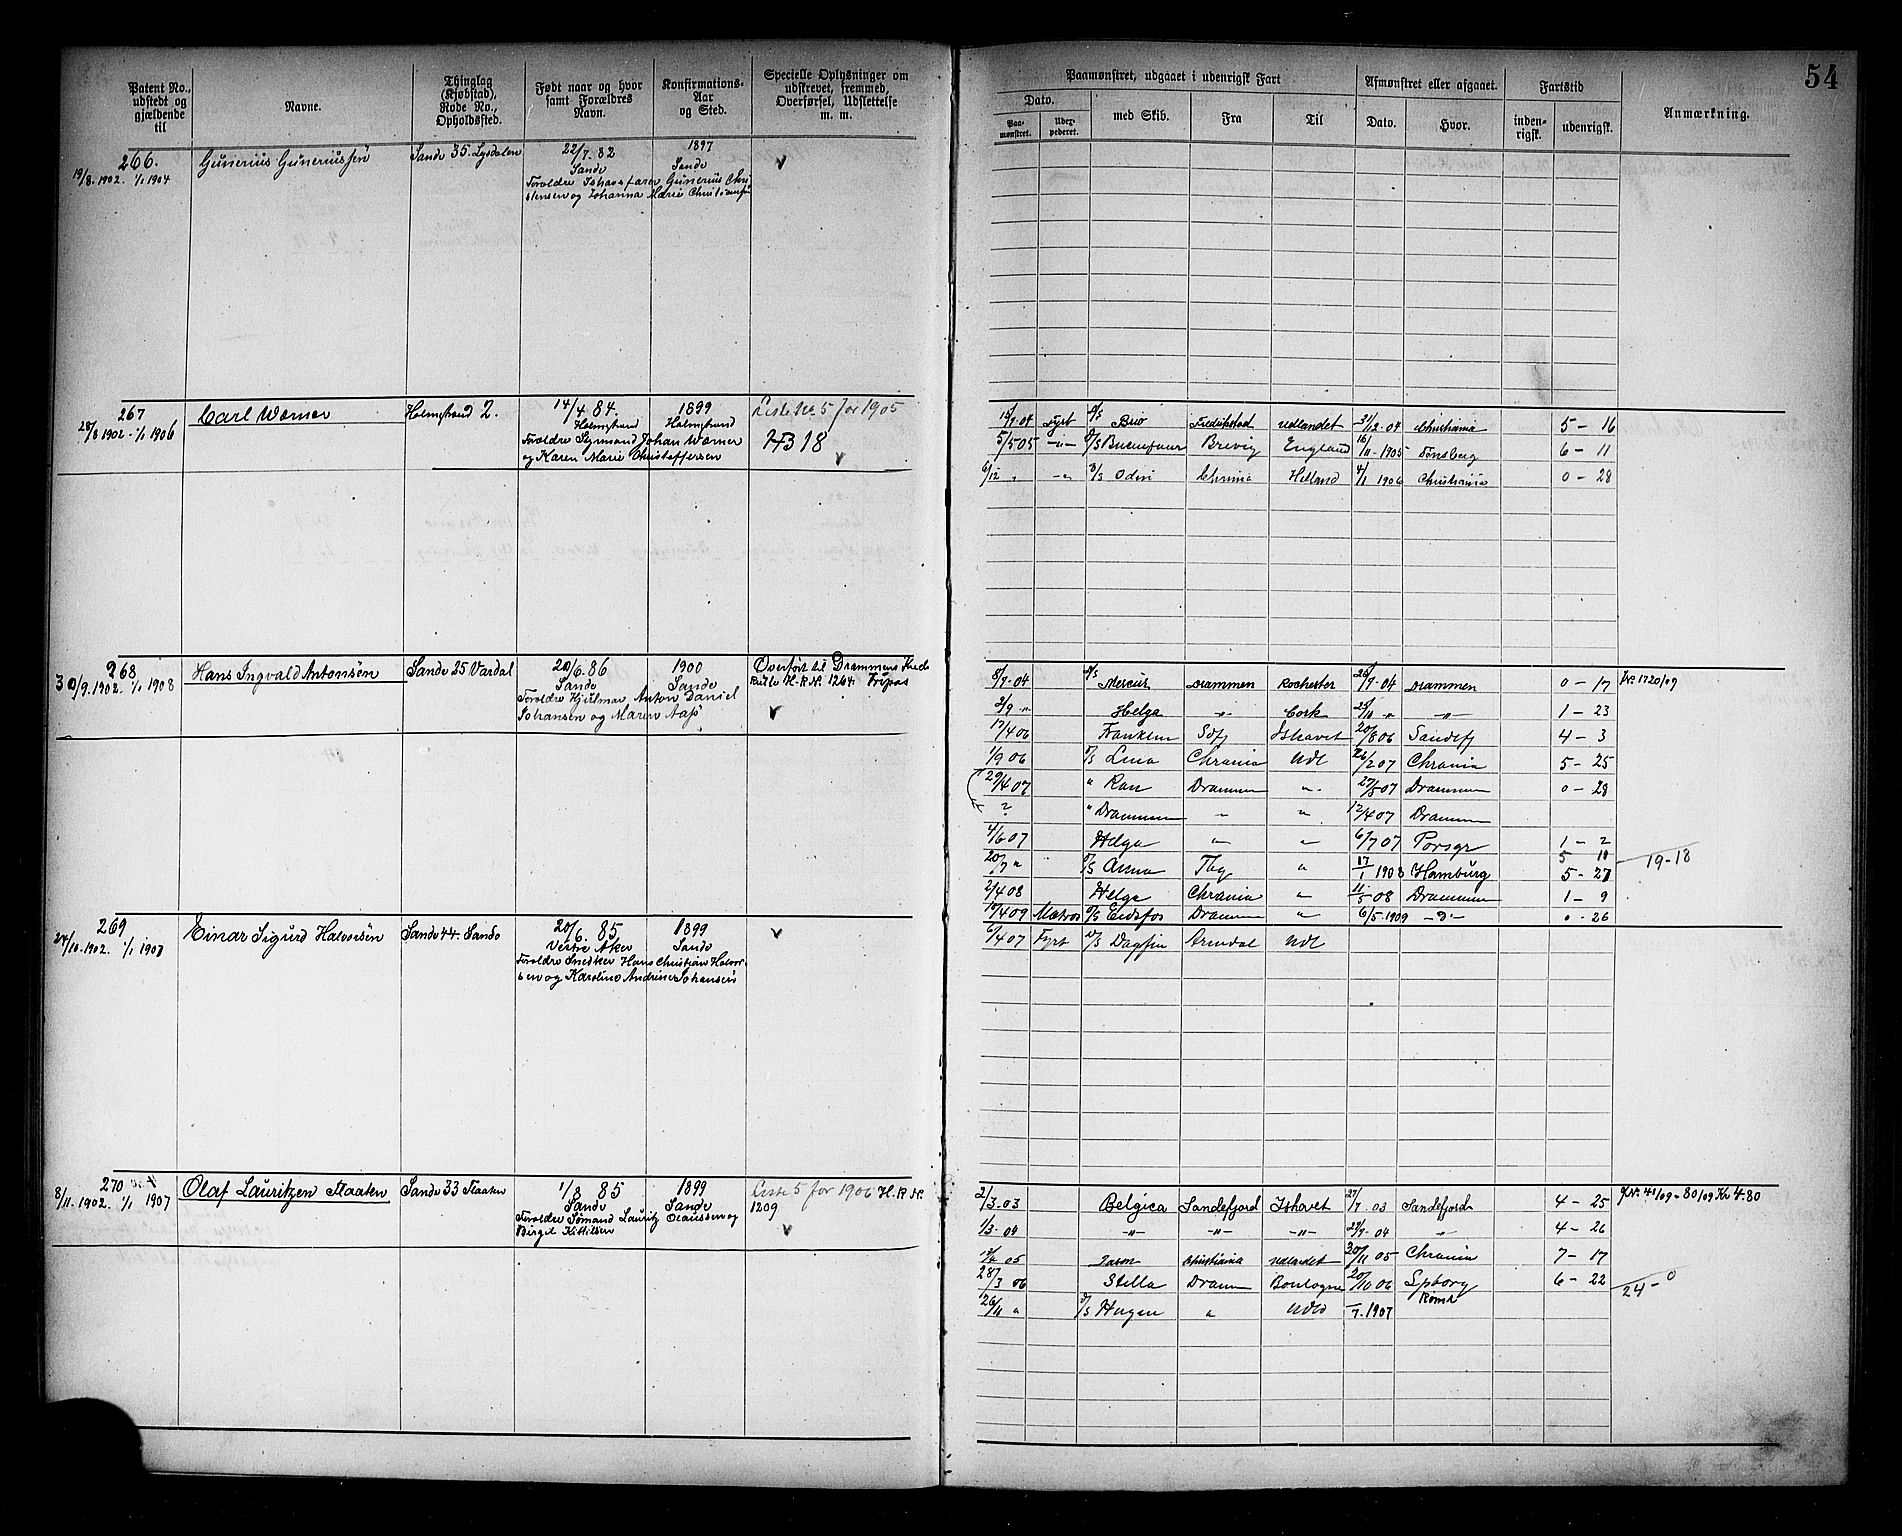 54
Patent No., udstedt og gjældende til
Navne.
Thinglag (Kjøbstad), Rode No., Opholdssted.
Født naar og hvor samt Forældres Navn.
Konfirmations-Aar og Sted.
Specielle Oplysninger om udskrevet, fremmed, Overførsel, Udslettelse m. m.
Paamønstret, udgaaet i udenrigsk Fart
Dato.
Paa-mønstret.
Udex-pederet.
med Skib.
Fra
Til
Afmønstret eller afgaaet.
Dato.
Hvor.
Fartstid
inden-rigsk.
udenrigsk.
Anmærkning.
266.
19/8.1902. 1/1 1904
Gunerius Guneriussen
Sande 35. Lysdalen
22/7. 82
Sande
1897
Sande
Forældre Ishavsfarer Gunerius Chri
stensen og Johanna Marie
267
28/8 1902 - 1/1 1906
Carl Werner
Holmestrand 2.
14/4 84.
Holmestrand
1899
Holmestrand
Forældre Sjømand Johan Werner
og Karen Marie Christoffersen
Liste No 5 for 1905
15/7-04 Fyrb D/S Brio Fredrikstad Udlandet 31/12-04 Christiania 5 - 16
5/5 05 -"- D/S Brevig England 16/11-1905 Tønsberg 6 - 11
6/12 " -"- D/S Odin Chrania 4/1 1906 Christiania 0 - 28
268
30/9.1902. 1/1 1908
Hans Ingvald Antonsen
Sande 25 Vardal
20/6. 86
Sande
1900
Sande
Forældre Hjelmar Anton Daniel
Johansen og Maren Aas
Overført til Drammens Kreds
Rulle H.R.N. 1264
8/7-04 D/S Mercur Drammen Rochester 26/7-04 Drammen 0 - 17 Nr. 1720/09
3/9 " Helga -"- Cork 25/11 " -"- 1 - 23
17/4 06 Franklin Sdfj Ishavet 20/8 06 Sandefj 4 - 3
1/9 06 D/S Lina Chrania Udl 26/2 07 Chrania 5 - 25
29/4 07 " Ran Drammen " 27/5 07 Drammen 0 - 28
? " Drammen " " 12/4 07 Drammen
4/6 07 Helga " " 6/7 07 Porsgr 1 - 2
20/7 " D/S Anna Tbg " 17/1 1908 Hamburg 5 - 27
19-18
2/4 08 Helga Chrania " 11/5 08 Drammen 1 - 9
10/4 09 Matros D/S Eidsfos Dramm " 6/5 1909 -"- 0 - 26
269
24/10.1902. 1/1 1907
Einar Sigurd Halvorsen
Sande 44. Sande
20/6. 85
Vestre Aker
1899
Sande
Forældre Snedker Hans Christian Halvor
sen og Karoline Andrine Johansen
6/4 07 Fyrb D/S Dagfin Arendal Udl
270
8/11.1902. 1/1 1907
Olaf Lauritzen Flaaten
Sande 33 Flaaten
1/8 85
Sande
1899
Sande
Forældre Sømand Lauritz Olaussen og
Birgit Kittilsen
Liste 5 for 1906 H.R.N.
1209
2/3.03 Belgica Sandefjord Ishavet 27/7 03 Sandefjord 4 - 25
1/3-04 -"- -"- -"- 29/7-04 " 4 - 26
05 Jason Christiania Udlandet 30/11 05 Chrania 7 - 17
28/3 06 Stella Dramm Boulogne 20/10 06 Spborg 6 - 22
24 - 0
26/11 " D/S Haugen " Udld /7.1907